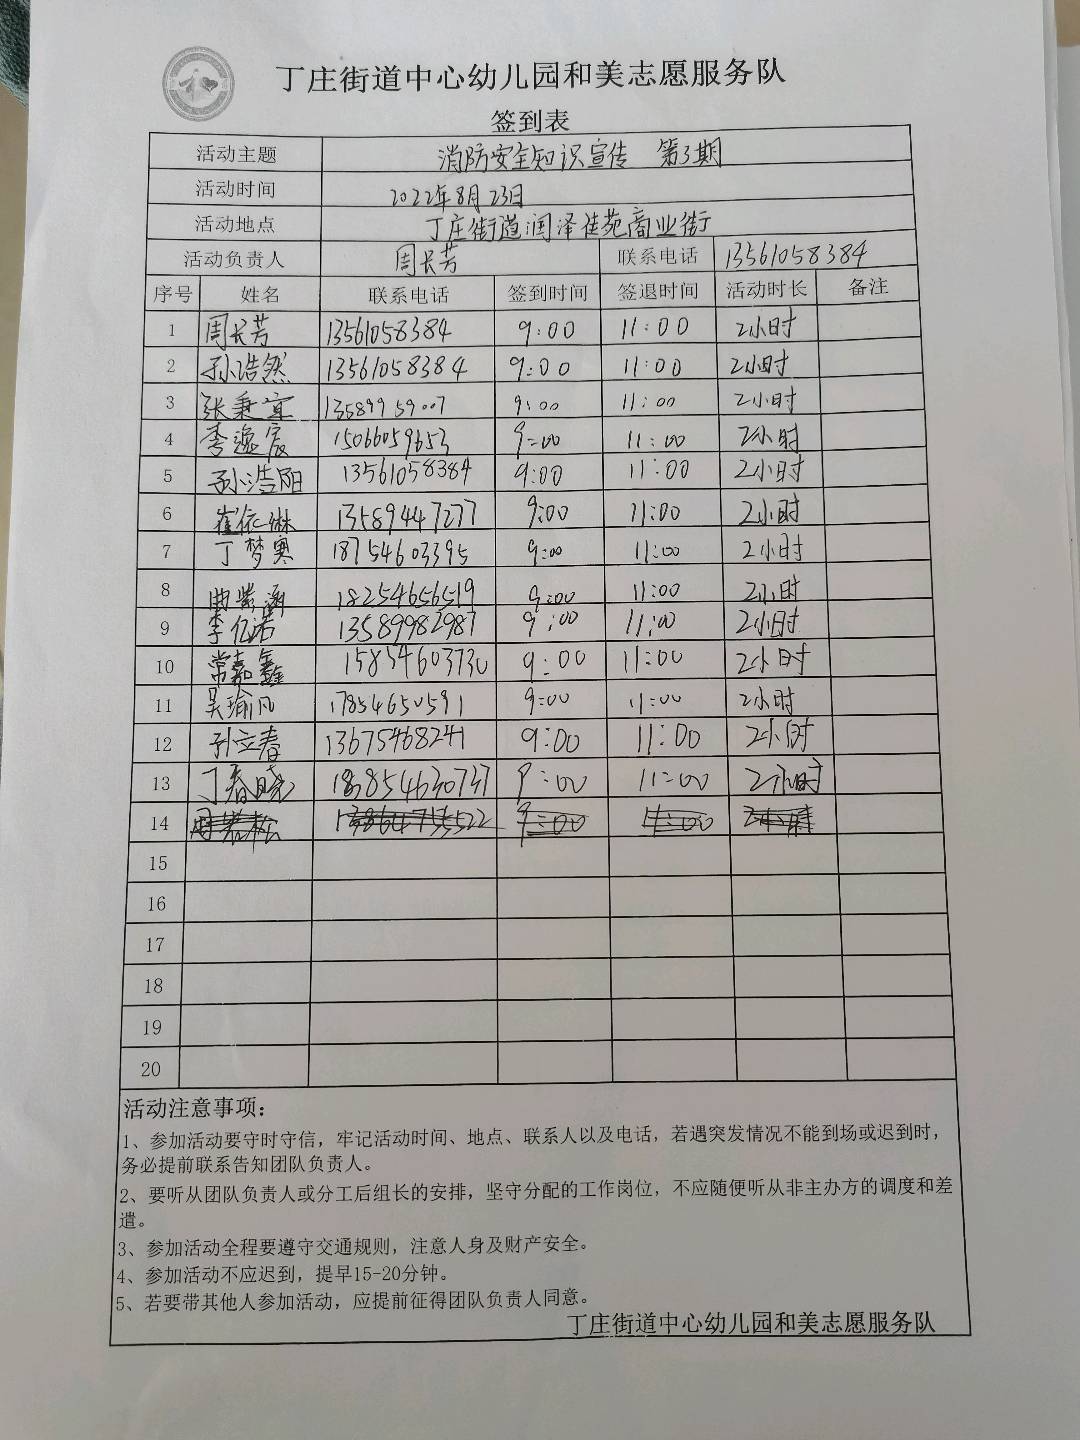 丁庄街道中心幼儿园和美志愿服务队
签到表
活动主题 消防安全知识宣传 第3期
活动时间 2022年8月23日
活动地点 丁庄街道润泽佳苑商业街
活动负责人 周长芳 联系电话 13561058384
序号 姓名 联系电话 签到时间 签退时间 活动时长 备注
1 周长芳 13561058384 9:00 11:00 2小时
2 孙浩然 13561058384 9:00 11:00 2小时
3 张秉宜 13589959007 9:00 11:00 2小时
4 李逸宸 15066059653 9:00 11:00 2小时
5 孙浩阳 13561058384 9:00 11:00 2小时
6 崔依琳 13589447277 9:00 11:00 2小时
7 丁梦寒 18754603395 9:00 11:00 2小时
8 曲紫涵 18254656519 9:00 11:00 2小时
9 李亿诺 13589982987 9:00 11:00 2小时
10 常嘉鑫 15854603730 9:00 11:00 2小时
11 吴瑜凡 17854650591 9:00 11:00 2小时
12 孙立春 13675468241 9:00 11:00 2小时
13 丁春晓 18854630737 9:00 11:00 2小时
14 9:00 11:00 2小时
15
16
17
18
19
20
活动注意事项：
1、参加活动要守时守信，牢记活动时间、地点、联系人以及电话，若遇突发情况不能到场或迟到时，
务必提前联系告知团队负责人。
2、要听从团队负责人或分工后组长的安排，坚守分配的工作岗位，不应随便听从非主办方的调度和差
遣。
3、参加活动全程要遵守交通规则，注意人身及财产安全。
4、参加活动不应迟到，提早15-20分钟。
5、若要带其他人参加活动，应提前征得团队负责人同意。
丁庄街道中心幼儿园和美志愿服务队